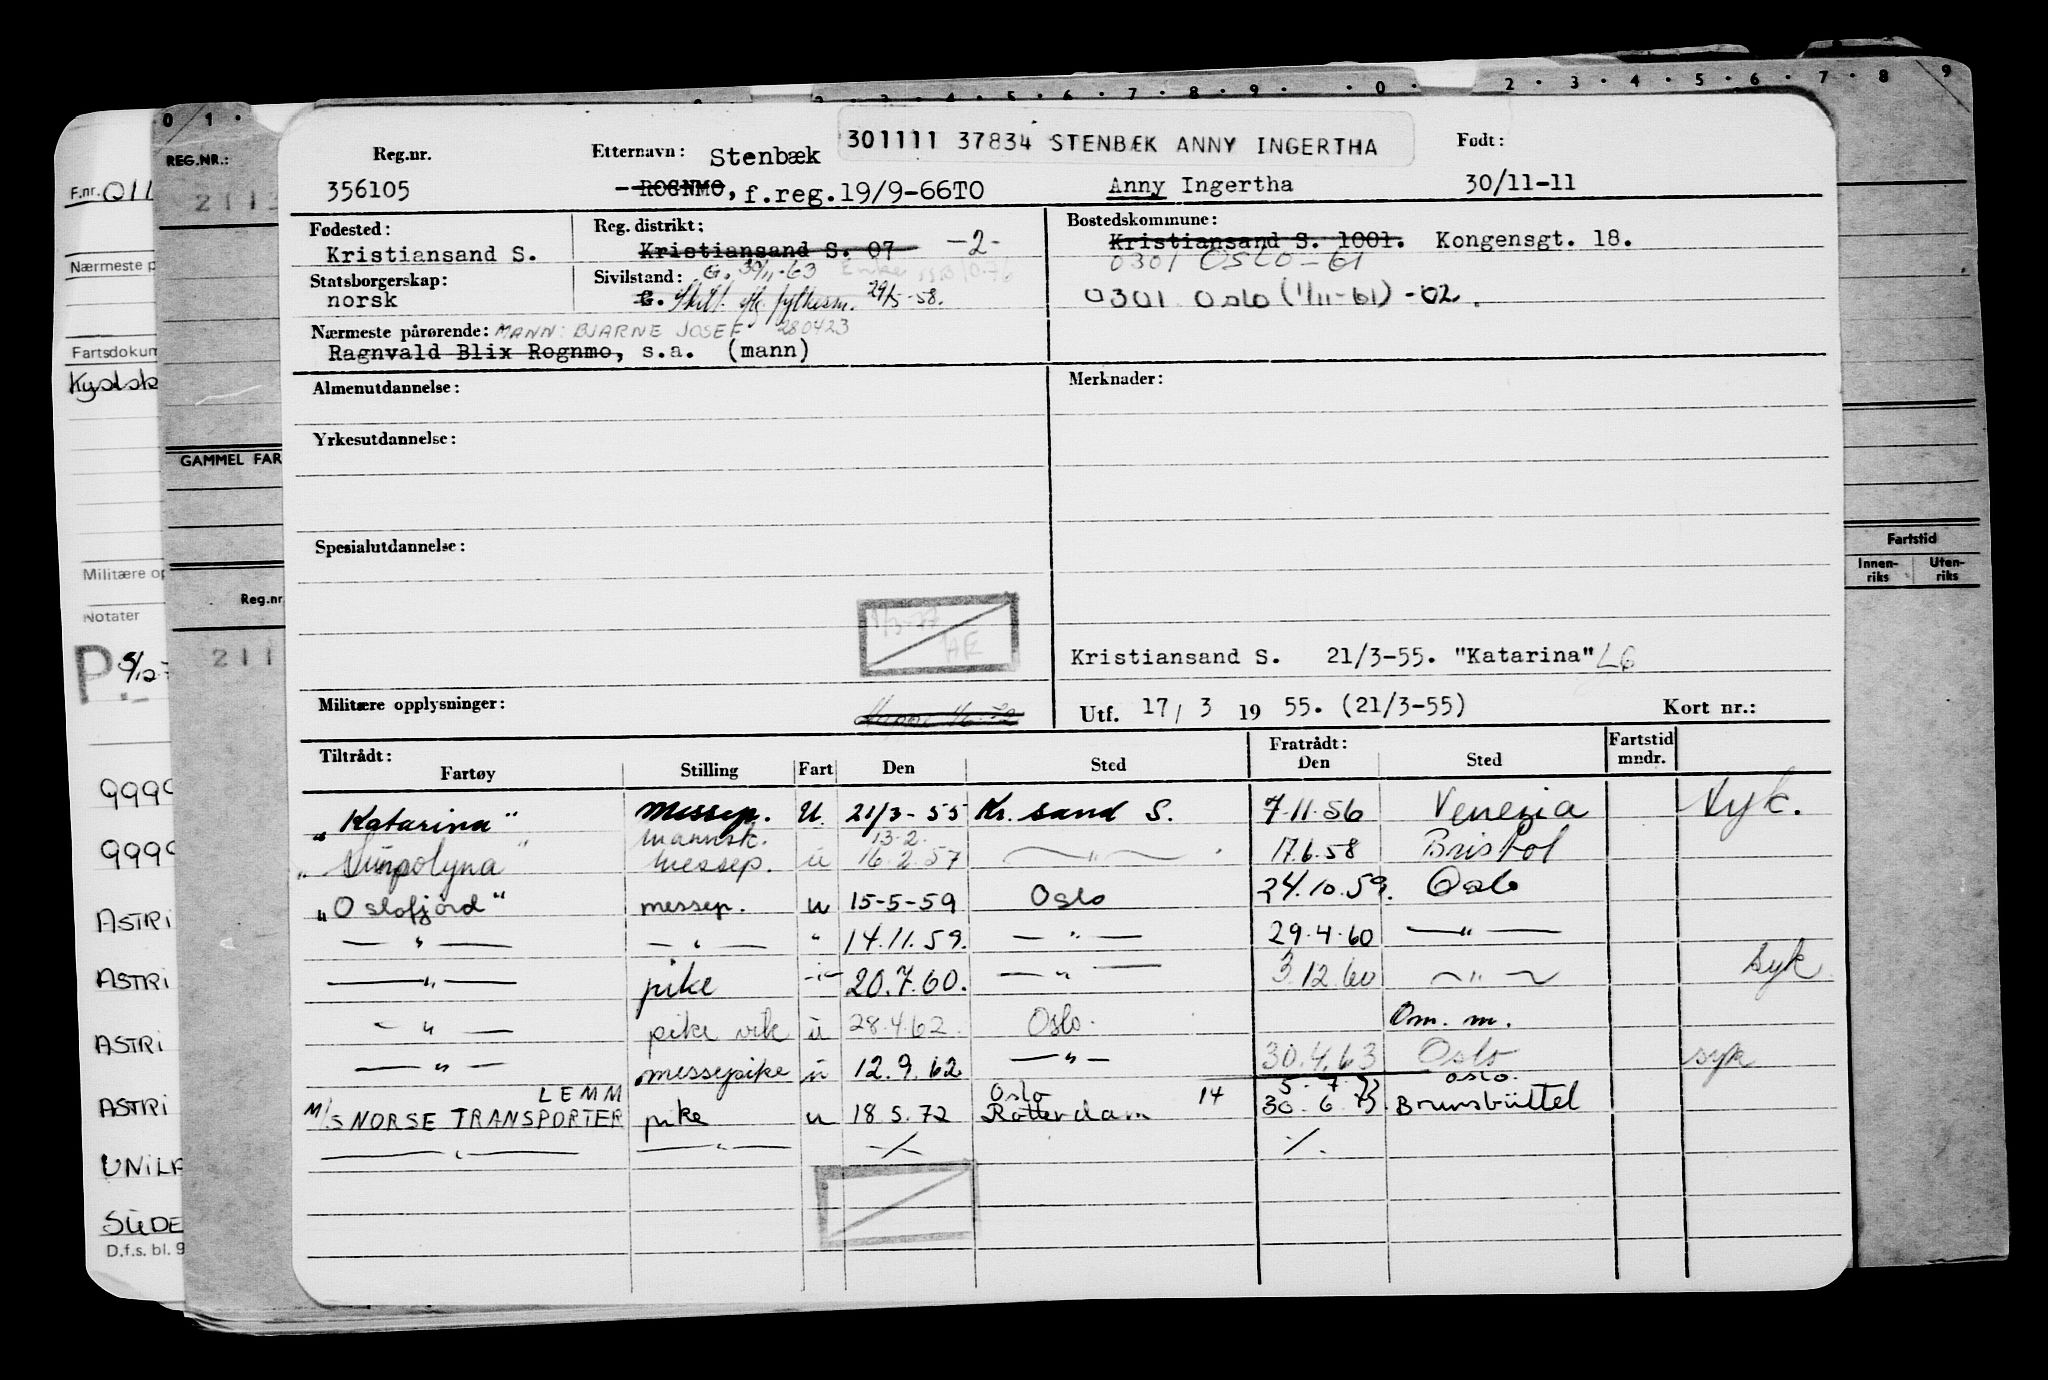 0 1 . 2 . 3 . 4 . 5 . 6 . 7 . 8 . 9 . . 0 . 2 . 3 . 4 . 5 . 6 . 7 . 8 9
REG.NR.:
F.nr. 011
2113
Nærmeste p
Fartsdokum
Kystsk
GAMMEL FAR
Militære op
Reg.nr
Notater
211
P 5/12-7
9999
9999
ASTRI
ASTRI
ASTRI
ASTRI
UNILA
SÜDE
D.f.s. bl. 9
Fartstid
Innen-riks Uten-riks
301111 37834 STENBÆK ANNY INGERTHA
Reg.nr. Etternavn: Stenbæk Født:
356105 - ROGNMO, f.reg.19/9-66TO Anny Ingertha 30/11-11
Fødested: Reg. distrikt: Bostedskommune:
Kristiansand S. Kristiansand S. 07 -2- Kristiansand S. 1001. Kongensgt. 18.
0301 OSLO-61
Statsborgerskap: Sivilstand: G. 30/11-63 Enke
norsk G. Skilt. fylkesm. 29/5-58. 0301 Oslo (1/11-61) -02.
Nærmeste pårørende: MANN: BJARNE JOSEF 280423
Ragnvald Blix Rognmo, s.a. (mann)
Almenutdannelse: Merknader:
Yrkesutdannelse:
Spesialutdannelse:
Kristiansand S. 21/3-55. "Katarina" L6
Militære opplysninger: Utf. 17/ 3 19 55. (21/3-55) Kort nr.:
Tiltrådt: Fratrådt: Fartstid
Fartøy Stilling Fart Den Sted Den Sted mndr.
"Katarina" messep. U. 21/3-55 Kr. sand S. 7.11.56 Venezia syk.
mannsk. 13.2.
messep. u 16.2.57 — " — 17.6.58 Bristol
"Oslofjord" messep. u 15-5-59 Oslo 24.10.59. Oslo
— " — — " — " 14.11.59. — " — 29.4.60 — " —
— " — pike — " — 20.7.60. — " — 3.12.60 — " — syk
— " — pike vik u 28.4.62. Oslo. Om. m.
— " — messepike u 12.9.62 — " — 30.4.63 Oslo syk
LEMM Oslo 5.7.73 oslo.
M/S NORSE TRANSPORTER pike u 18.5.72 Rotterdam 14 30.6.73 Brunsbüttel
— " — — " — -/- ./.